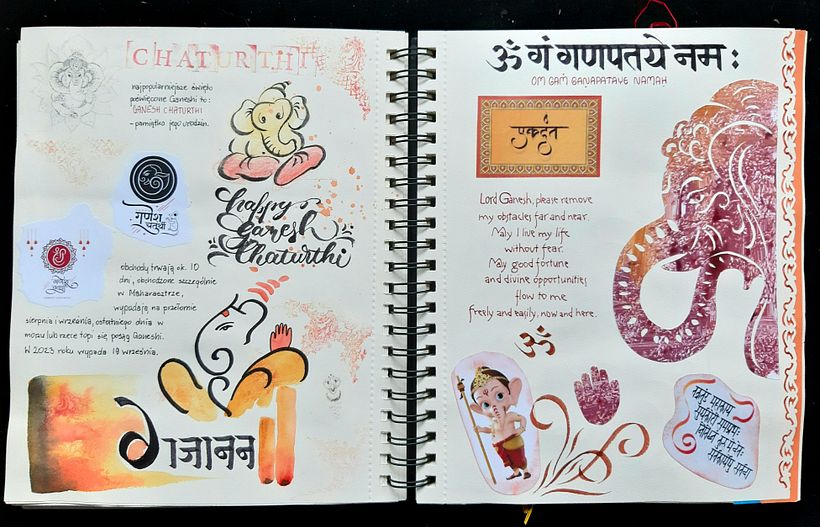 CHATURTHI
najpopularniejsze święto
poświęcone Ganeshi to:
GANESH CHATURTHI
- pamiątka jego urodzin.
गणेश
चतुर्थी
happy
Ganesh
Chaturthi
गणेश
चतुर्थी
obchody trwają ok. 10
dni, obchodzone szczególnie
w Maharasztrze,
wypadają na przełomie
sierpnia i września, ostatniego dnia w
morzu lub rzece topi się posąg Ganeshi.
W 2023 roku wypada 19 września.
गजानन
ॐ गं गणपतये नमः
OM GAṀ GAṆAPATAYE NAMAH
एकदंत
Lord Ganesh, please remove
my obstacles far and near.
May I live my life
without fear.
May good fortune
and divine opportunities
flow to me
freely and easily, now and here.
ॐ
वक्रतुंड महाकाय
सूर्यकोटी समप्रभः
निर्विघ्नं कुरु मे देव
सर्वकार्येषु सर्वदा